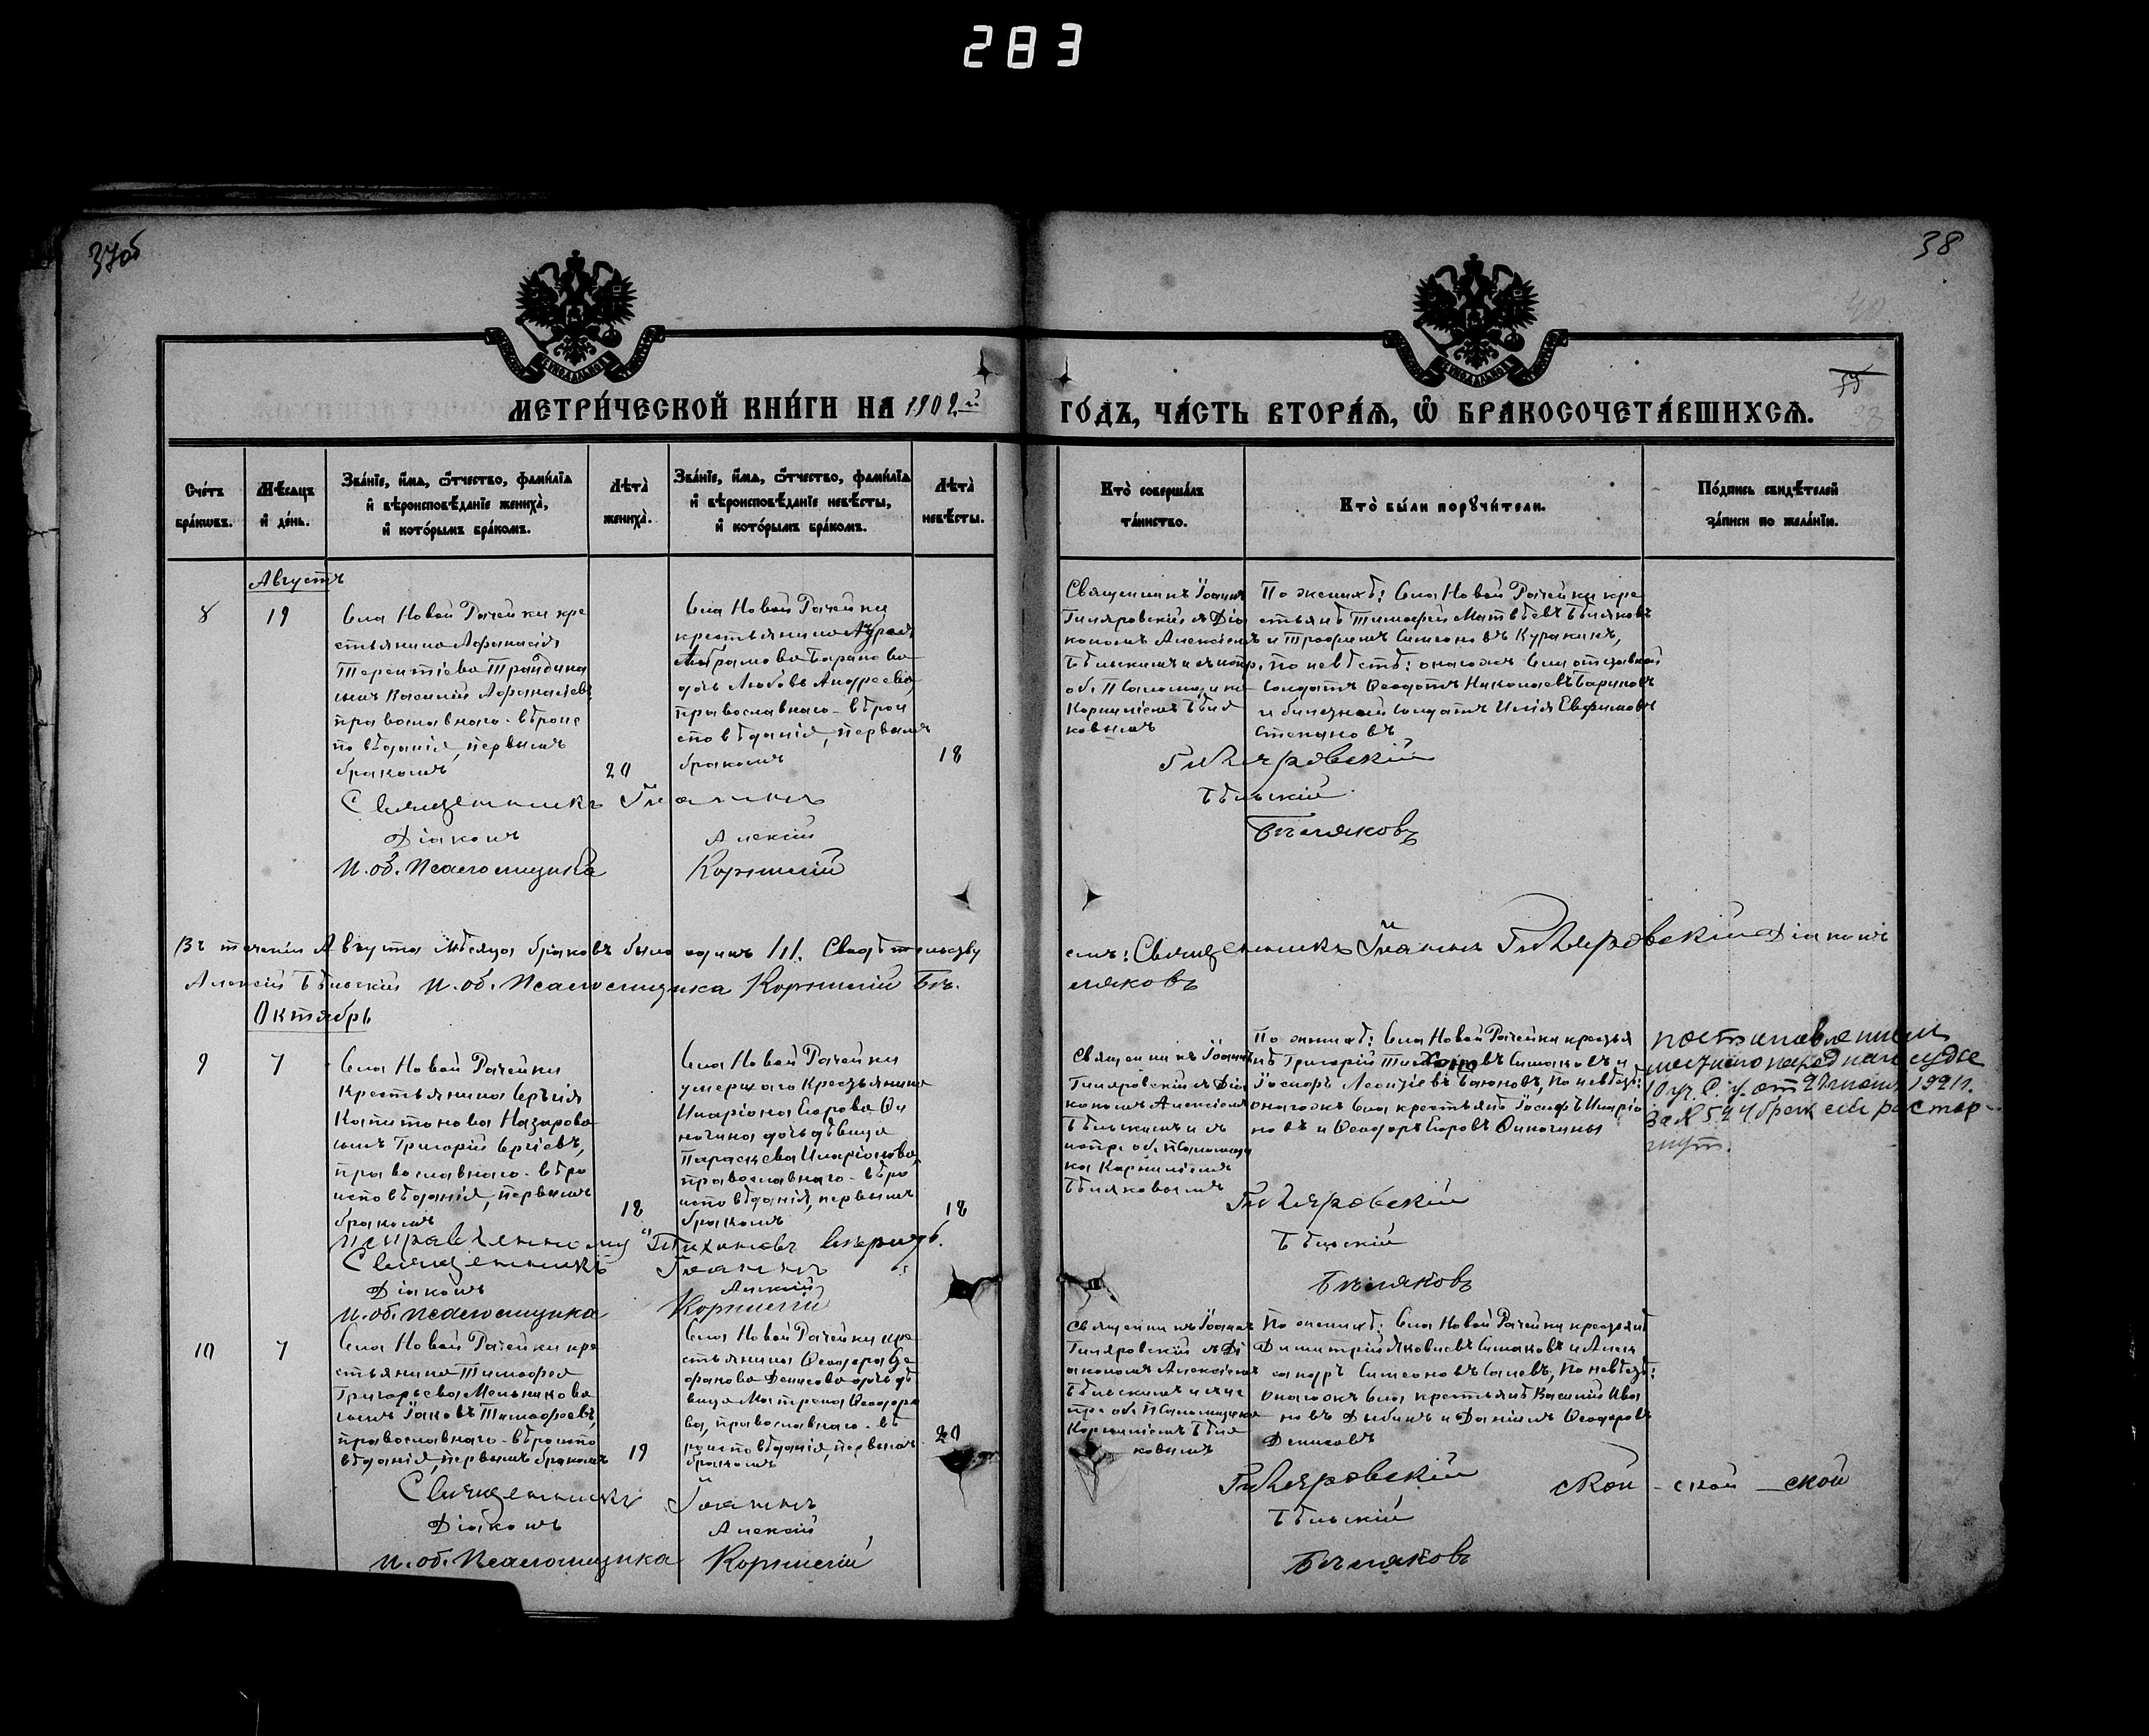 283
37об
38
МЕТРИ́ЧЕСКОЙ КНИ́ГИ НА 1902й
ГО́ДЪ, ЧА́СТЬ ВТОРА́Ѧ, Ѡ БРАКОСОЧЕТА́ВШИХСѦ.
Сче́тъ бра́кѡвъ.
Мѣ́сѧцъ и҆ де́нь.
Зва́нїе, и҆́мѧ, ѻ҆́тчество, фами́лїѧ
и҆ вѣроисповѣ́данїе жениха̀,
и҆ кото́рымъ бра́комъ.
Лѣта̀ жениха̀.
Зва́нїе, и҆́мѧ, ѻ҆́тчество, фами́лїѧ
и҆ вѣроисповѣ́данїе невѣ́сты,
и҆ кото́рымъ бра́комъ.
Лѣта̀ невѣ́сты.
Кто̀ соверша́лъ
та́инство.
Кто̀ бы́ли порꙋчи́тели.
По́дпись свидѣ́телей
за́писи по жела́нїю.
Августъ
8
19
Села Новой Рачейки кре
стьянина Афанасія
Терентіева Трайдина
сынъ Василій Афанасіевъ
православнаго вѣроис
повѣданія, первымъ
бракомъ
20
Села Новой Рачейки
крестьянина Андрея
Абрамова Баранова
дочь Любовь Андреева
православнаго вѣрои
сповѣданія, первымъ
бракомъ
18
Священникъ Іоаннъ
Гиляровскій съ Діа
кономъ Алексіемъ
Бѣльскимъ и съ испр.
об. Псаломщика
Корниліемъ Бѣля
ковымъ
По женихѣ: Села Новой Рачейки кре
стьянѣ Тимофей Матвѣевъ Бѣляковъ
и Трофимъ Симеоновъ Куракинъ,
по невѣстѣ: онагожъ Села отставной
солдатъ Ѳеодотъ Николаевъ Бариновъ
и билетный солдатъ Илія Евфимовъ
Степановъ
Священникъ Іоаннъ Гиляровскій
Діаконъ Алексій Бѣльскій
И. об. Псаломщика Корнилій Бѣляковъ
Въ теченіи Августа мѣсяца браковъ было одинъ /1/. Свидѣтельству
емъ: Священникъ Іоаннъ Гиляровскій Діаконъ
Алексій Бѣльскій И. об. Псаломщика Корнилій Бѣ-
ляковъ
Октябрь
9
7
Села Новой Рачейки
крестьянина Сергія
Капитонова Назарова
сынъ Григорій Сергіевъ,
православнаго вѣро
исповѣданія, первымъ
бракомъ
18
Села Новой Рачейки
умершаго крестьянина
Иларіона Егорова Ѳи
ногина дочь дѣвица
Параскева Иларіонова,
православнаго вѣро
исповѣданія, первымъ
бракомъ
18
Священникъ Іоаннъ
Гиляровскій съ Діа
кономъ Алексіемъ
Бѣльскимъ и съ
испр. об. Псаломщи
ка Корниліемъ
Бѣляковымъ
По женихѣ: Села Новой Рачейки крестья
нѣ Григорій Тихоновъ Симаковъ и
Іосифъ Леонтіевъ Баюновъ, по невѣстѣ:
онагожъ Села крестьянѣ Іосифъ Иларіо
новъ и Ѳеодоръ Егоровъ Ѳиногины
постановлением
местного народного суда
10 уч. С. у. от 1921 г.
за № брак сей растор-
гнут.
Исправленному "Тихоновъ вѣрить.
Священникъ Іоаннъ Гиляровскій
Діаконъ Алексій Бѣльскій
И. об. Псаломщика Корнилій Бѣляковъ
10
7
Села Новой Рачейки кре
стьянина Тимофея
Григорьева Мельникова
сынъ Іаковъ Тимофеевъ,
православнаго вѣроиспо
вѣданія, первымъ бракомъ
19
Села Новой Рачейки кре
стьянина Ѳеодора Се
рафова Денисова дочь дѣ
вица Матрона Ѳеодоро
ва, православнаго вѣ
роисповѣданія, первымъ
бракомъ
20
Священникъ Іоаннъ
Гиляровскій съ Ді
акономъ Алексіемъ
Бѣльскимъ и съ ис
пр. об. Псаломщика
Корниліемъ Бѣля
ковымъ
По женихѣ: Села Новой Рачейки крестьянѣ
Димитрій Яковлевъ Симаковъ и Алек
сандръ Симеоновъ Салевъ, по невѣстѣ:
онагожъ Села крестьянѣ Василій Ива
новъ Дыбинъ и Даніилъ Ѳеодоровъ
Денисовъ
Священникъ Іоаннъ Гиляровскій
ской - ской - ской
Діаконъ Алексій Бѣльскій
И. об. Псаломщика Корнилій Бѣляковъ